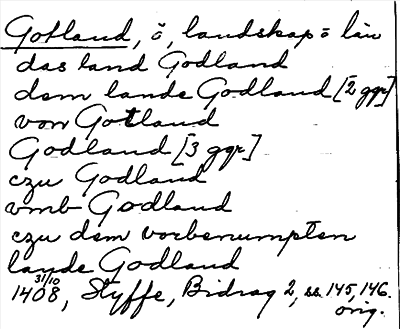 Gotland, ö, landskap o län
das land Godland
dem lande Godland [2 ggr]
von Gotland
Godland [3 ggr]
czu Godland
vmb Godland
czu dem vorbenumpten
lande Godland
31/10
1408, Styffe, Bidrag 2, ss. 145, 146.
orig.